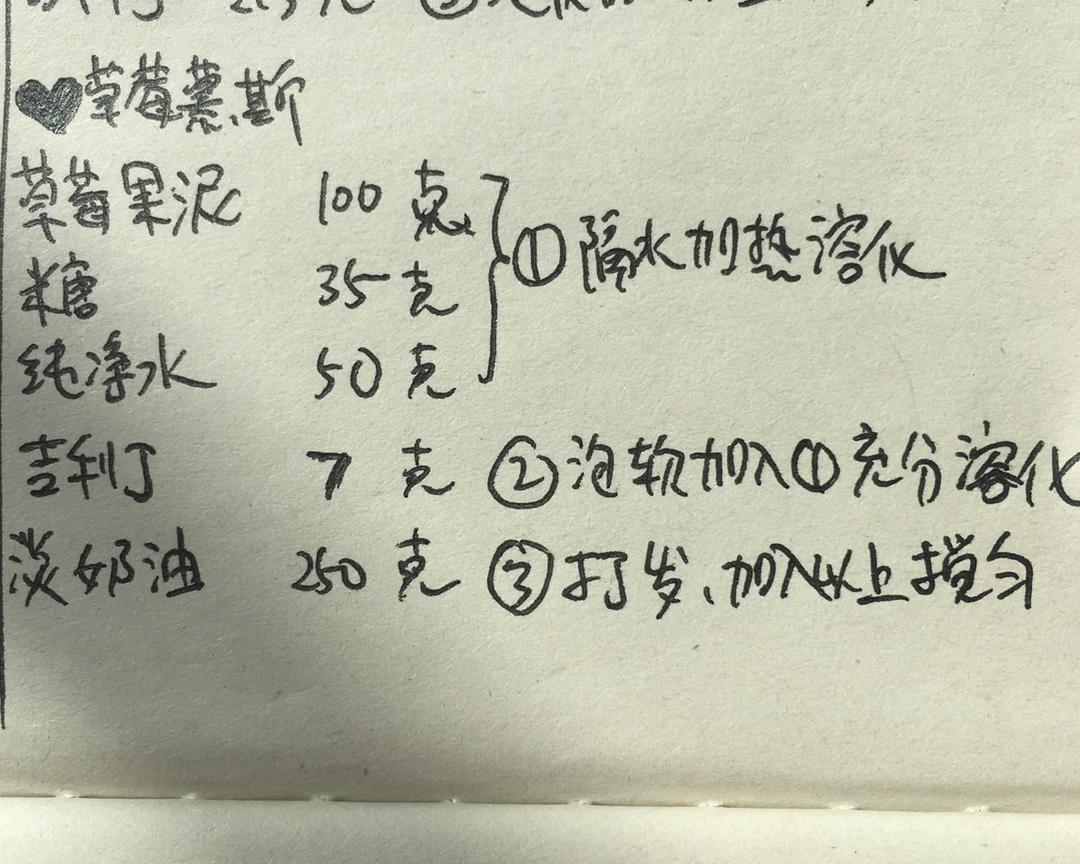 ♥草莓慕斯
草莓果泥 100 克
①隔水加热溶化
糖 35 克
纯净水 50 克
吉利丁 7 克 ②泡软加入①充分溶化
淡奶油 250 克 ③打发、加入以上搅匀